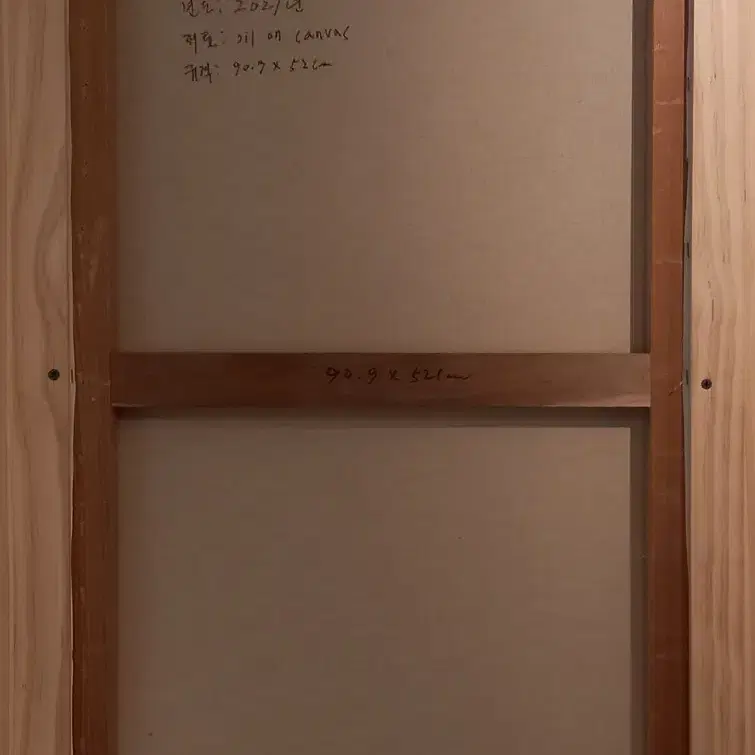 년도: 2021년
재료: oil on canvas
규격: 90.9 x 52cm
90.9 x 52cm